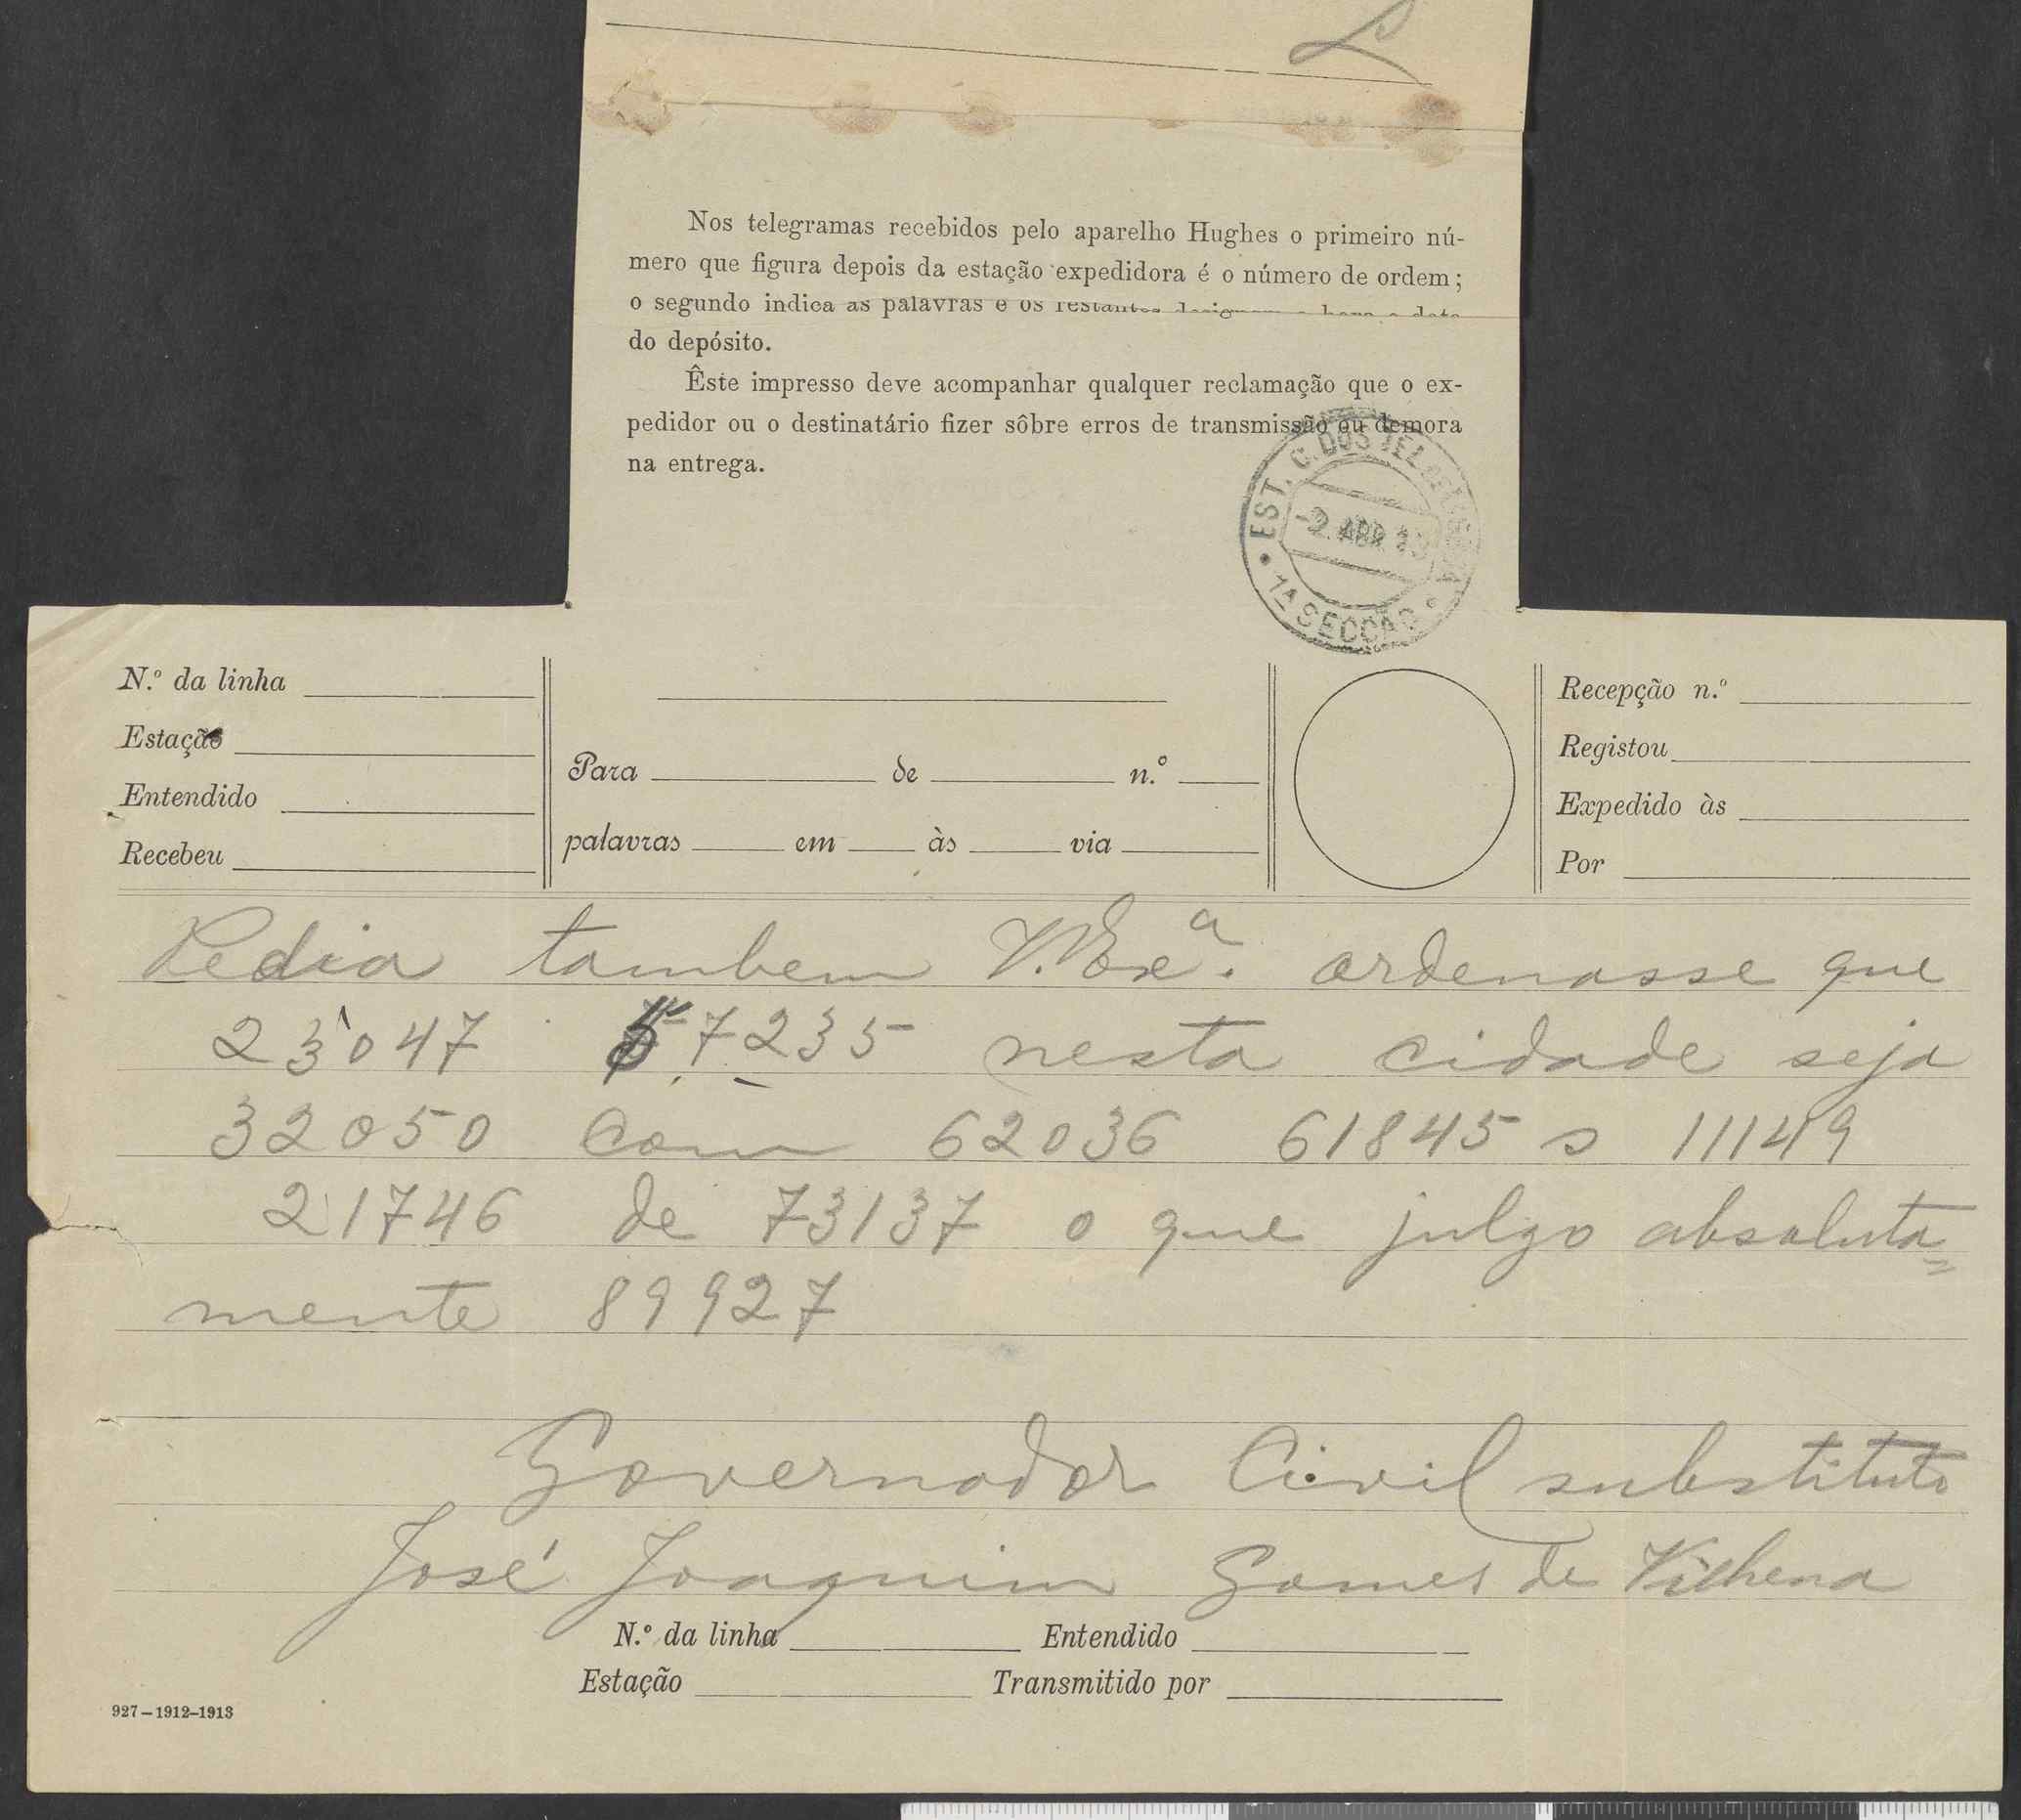 Nos telegramas recebidos pelo aparelho Hughes o primeiro nú-
mero que figura depois da estação expedidora é o número de ordem;
o segundo indica as palavras e os restantes designam a hora e data
do depósito.
Êste impresso deve acompanhar qualquer reclamação que o ex-
pedidor ou o destinatário fizer sôbre erros de transmissão ou demora
na entrega.
EST. C. DOS TEL.
-2. ABR. 13
1ª SECCÃO
N.º da linha
Estação
Entendido
Recebeu
Para de n.º
palavras em às via
Recepção n.º
Registou
Expedido às
Por
Pedia tambem V. Exª. ordenasse que
23047 57235 nesta cidade seja
32050 com 62036 61845 s 11149
21746 de 73137 o que julgo absoluta=
mente 89927
Governador Civil substituto
José Joaquim Gomes de Vilhena
N.º da linha Entendido
Estação Transmitido por
927–1912–1913